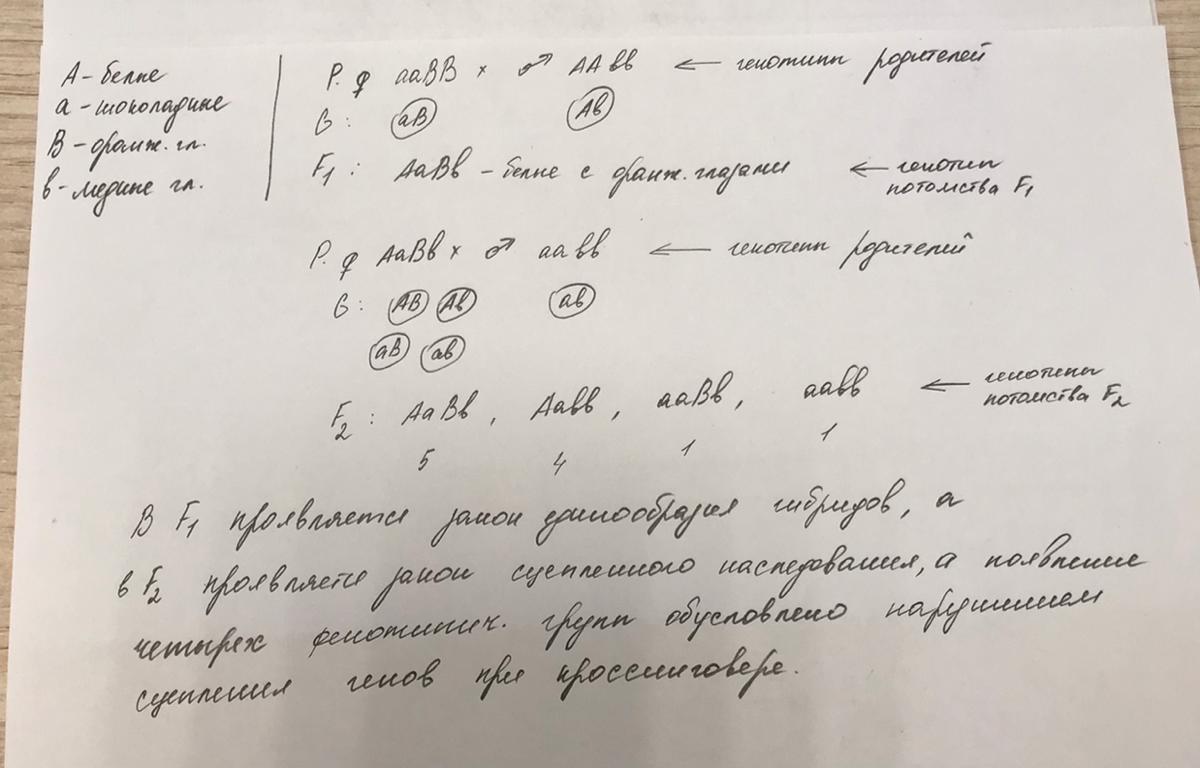 А - белые
а - шоколадные
В - оранж. гл.
в - медные гл.
P. ♀ ааВВ × ♂ ААвв ← генотипы родителей
G: аВ Ав
F1: АаВв - белые с оранж. глазами ← генотип
потомства F1
P. ♀ АаВв × ♂ аавв ← генотипы родителей
G: АВ Ав ав
аВ ав
F2: АаВв, Аавв, ааВв, аавв ← генотипы
потомства F2
5 4 1 1
В F1 проявляется закон единообразия гибридов, а
в F2 проявляется закон сцепленного наследования, а появление
четырех фенотипич. групп обусловлено нарушением
сцепления генов при кроссинговере.